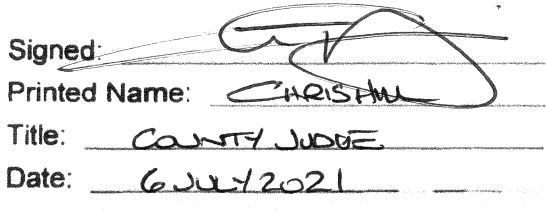 Signed:
Printed Name: CHRIS HILL
Title: COUNTY JUDGE
Date: 6 JULY 2021